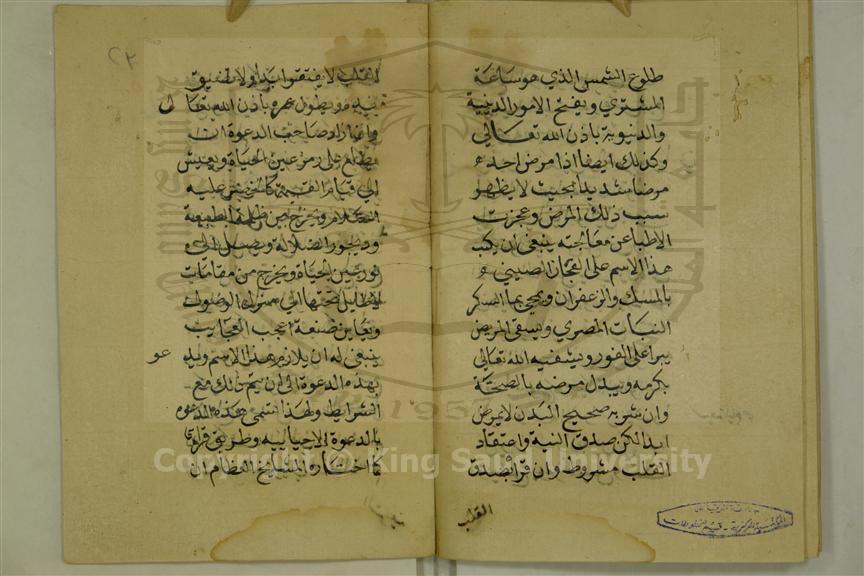 طلوع الشمس الذي هو ساعة
المشتري ويفتح الامور الدينية
والدنيوية باذن الله تعالى
وكذلك ايضا اذا مرض احد
مرضا شديدا بحيث لا يظهر
سبب ذلك المرض وعجزت
الاطبا عن معالجته ينبغي ان يكتب
هذا الاسم على الفنجان الصيني
بالمسك والزعفران ويمحي بماء السكر
النبات المصري ويسقى المريض
يبرا على الفور ويشفيه الله تعالى
بكرمه ويبدل مرضه بالصحة
وان شربه صحيح البدن لا يمرض
ابدا لكن صدق النية واعتقاد
القلب مشروط وان قرا بصدق
القلب
٢٢
القلب لا يفتقر ابدا ولا تضيق
يده ويطول عمره باذن الله تعالى
واذا اراد صاحب الدعوة ان
يطلع على رمز عين الحياة ويعيش
الى قيام القيمة
ويخرج من ظلمة الطبيعة
وديجور الضلالة ويصل الى
نور عين الحياة ويخرج من مقامات
الى منزل الوصول
ويعاين صنعة اعجب العجايب
ينبغي له ان يلازم هذا الاسم
بهذه الدعوة الى ان يتم ذلك مع
الشرايط ولهذا تسمى هذه الدعوة
بالدعوة الاحيائيه وطريق
كما اختاره المشايخ العظام ان
Copyright © King Saud University
1957